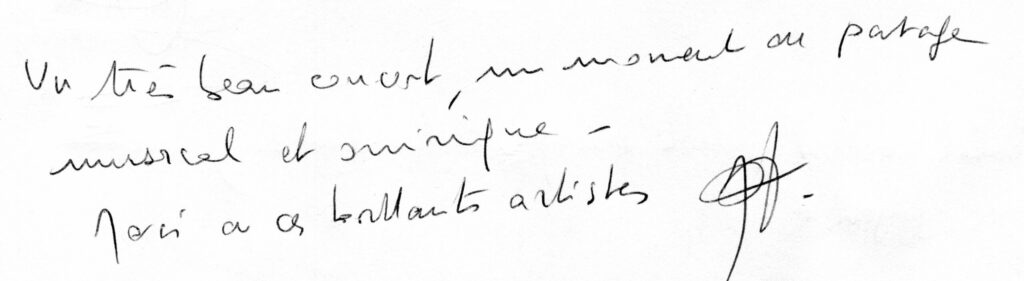 Un très beau concert, un moment de partage
musical et onirique -
Merci à ces brillants artistes